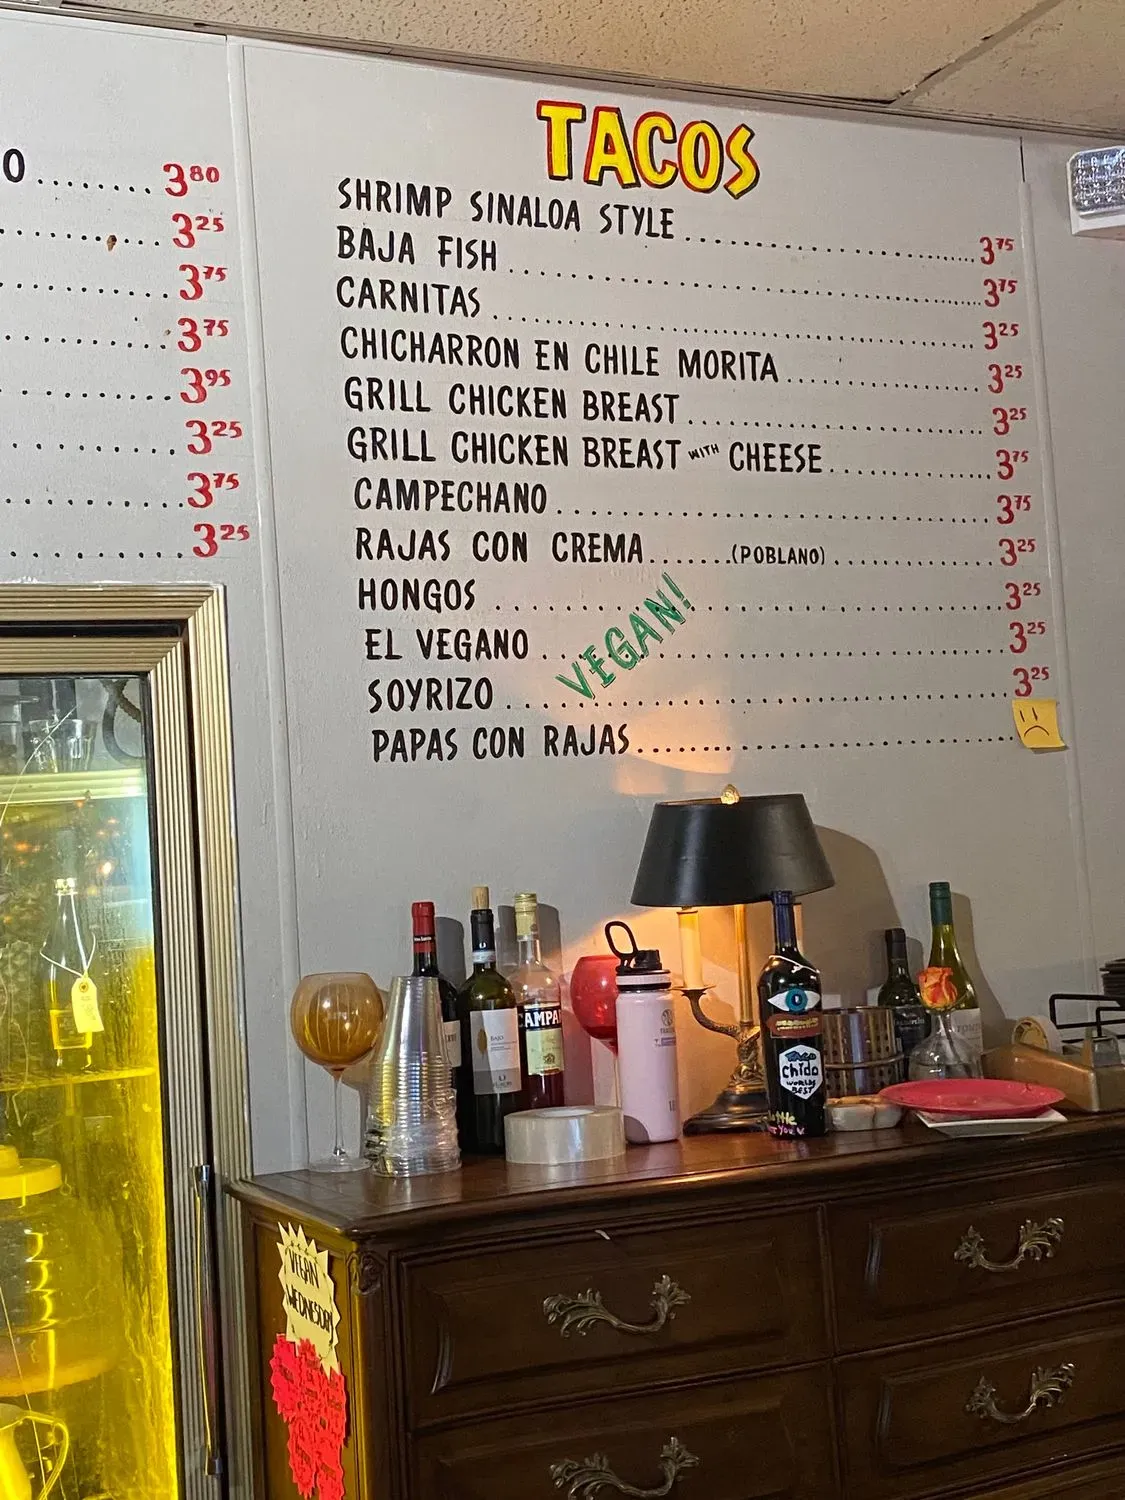 O ........ 380
325
375
375
395
325
375
325
TACOS
SHRIMP SINALOA STYLE 375
BAJA FISH 375
CARNITAS 325
CHICHARRON EN CHILE MORITA 325
GRILL CHICKEN BREAST 325
GRILL CHICKEN BREAST WITH CHEESE 375
CAMPECHANO 375
RAJAS CON CREMA (POBLANO) 325
HONGOS 325
EL VEGANO 325
SOYRIZO 325
PAPAS CON RAJAS
VEGAN!
CAMPA
BAJO
TACO
Chido
WORLDS
BEST
VEGAN
WEDNESDAY